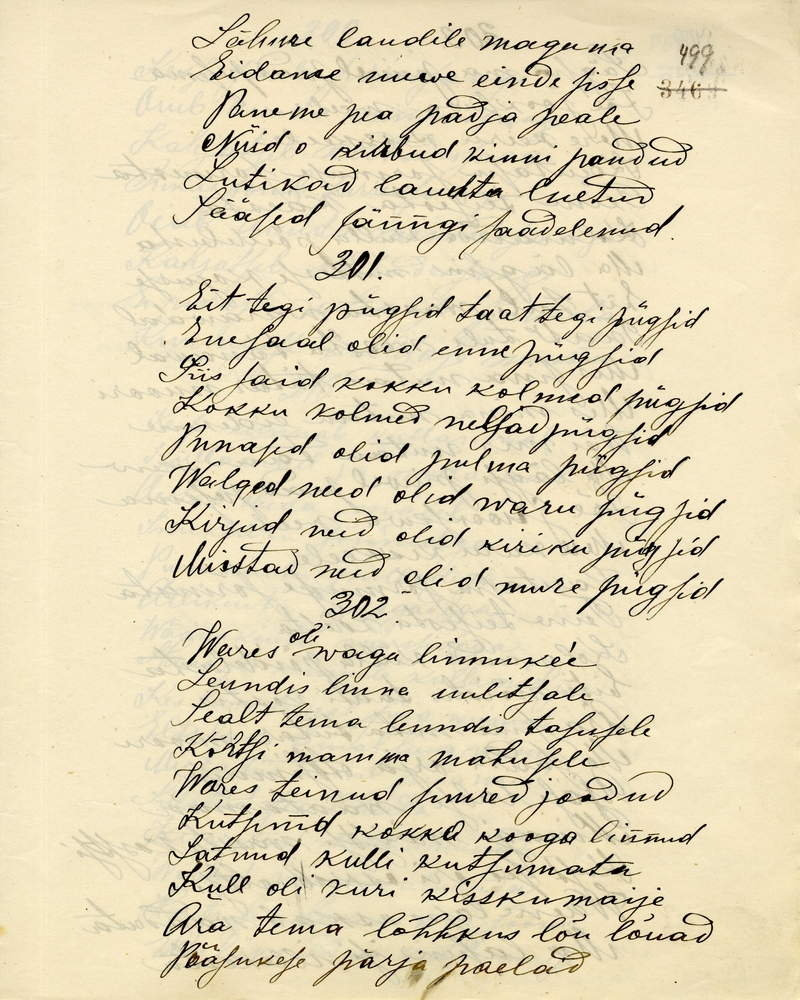 Lähme laudile magama
499
Eidame uuwe einde sisse
3463
Paneme pea padja peale
Nüid o kirbud kinni pandud
Lutikad lauta luetud
Sääsed sänngi saadelenud.
301.
Eit tegi pügsid taat tegi pügsid
Enesaal olid enne pügsid
Siis said kokku kolmed pügsid
Kokku kolmed neljad pügsid
Punased olid pulma pügsid
Walged need olid waru pügsid
Kirjud neid olid kiriku pügsid
Musstad neid olid mure pügsid
302.
Wares oli waga linnukée
Lenndis linna uulitsale
Sealt tema lenndis tasusele
Kõrtsi mamma matusele
Wares teinud suured joodud
Kutsunud kokku kooga linnud
Jätnud kulli kutsumata
Kull oli kuri kisskumaije
Ära tema lõhhkus lõu lõuad
Pääsukese pärja paelad